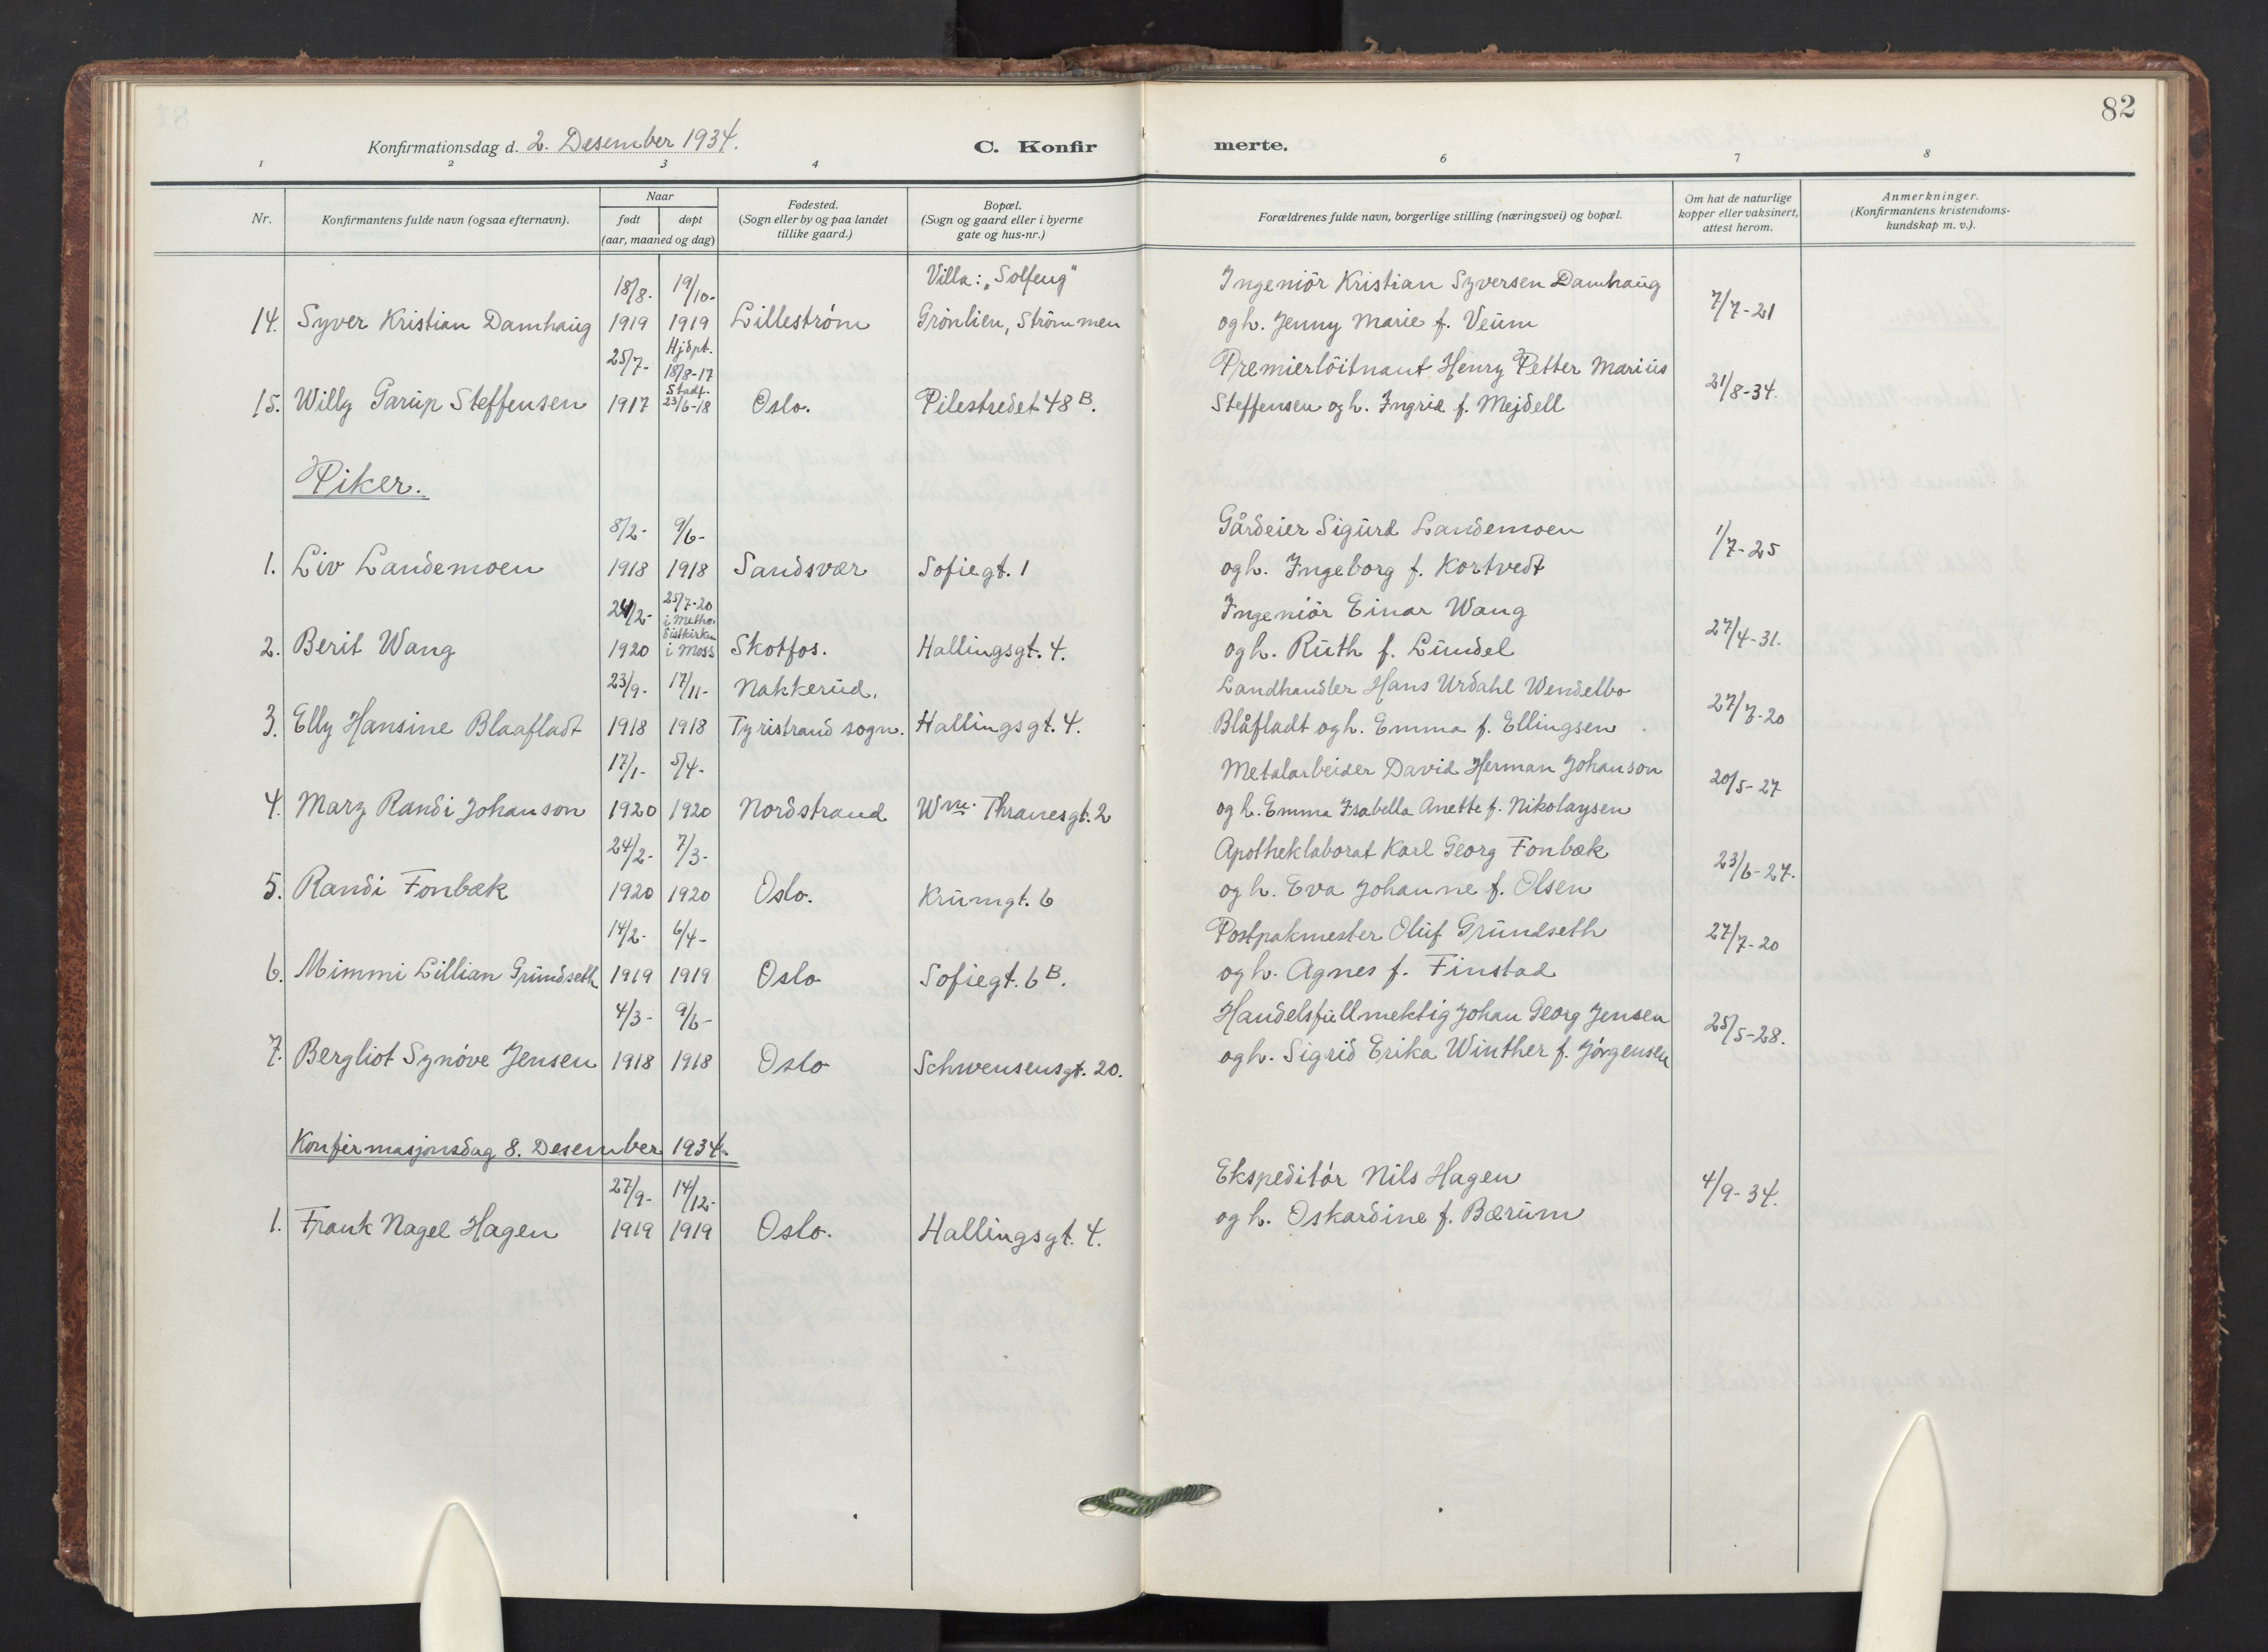 82
Konfirmationsdag d. 2. Desember 1934.
C. Konfir
merte.
1 2 3 4 6 7 8
Nr.
Konfirmantens fulde navn (ogsaa efternavn).
Naar
født døpt
(aar, maaned og dag)
Fødested.
(Sogn eller by og paa landet
tillike gaard.)
Bopæl.
(Sogn og gaard eller i byerne
gate og hus-nr.)
Forældrenes fulde navn, borgerlige stilling (næringsvei) og bopæl.
Om hat de naturlige
kopper eller vaksinert,
attest herom.
Anmerkninger.
(Konfirmantens kristendoms-
kundskap m. v.).
18/8- 19/10- Villa: „Solfeng" Ingeniör Kristian Syversen Damhaug
14. Syver Kristian Damhaug 1919 1919 Lilleström Grönlien, Strömmen og h. Jenny Marie f. Veum 7/7-21
25/7- Hjdpt. 18/8-17 Premierlöitnant Henry Petter Marius
15. Willy Garup Steffensen 1917 Stadf. 23/6-18 Oslo. Pilestredet 48 B. Steffensen og h. Ingrid f. Mejdell 21/8-34.
Piker.
8/2- 9/6- Gårdeier Sigurd Landemoen
1. Liv Landemoen 1918 1918 Sandsvær Sofiegt. 1 og h. Ingeborg f. Kortvedt 1/7-25
24/2- 25/7-20 i Metho- Ingeniör Einar Wang
2. Berit Wang 1920 distkirken i Moss Skotfos. Hallingsgt. 4. og h. Ruth f. Lundel 27/4-31.
23/9- 17/11- Nakkerud, Landhandler Hans Urdahl Wendelbo
3. Elly Hansine Blaafladt 1918 1918 Tyristrand sogn. Hallingsgt. 4. Blåfladt og h. Emma f. Ellingsen 27/7-20
17/1- 5/4- Metalarbeider David Herman Johanson
4. Mary Randi Johanson 1920 1920 Nordstrand Wm. Thranesgt. 2 og h. Emma Isabella Anette f. Nikolaysen 20/5-27
24/2- 7/3- Apotheklaborat Karl Georg Fonbæk
5. Randi Fonbæk 1920 1920 Oslo. Krumgt. 6 og h. Eva Johanne f. Olsen 23/6-27.
14/2- 6/4- Postpakmester Oluf Grundseth
6. Mimmi Lillian Grundseth 1919 1919 Oslo Sofiegt. 6 B. og h. Agnes f. Finstad 27/7-20
4/3- 9/6- Handelsfullmektig Johan Georg Jensen
7. Bergliot Synöve Jensen 1918 1918 Oslo Schwensensgt. 20. og h. Sigrid Erika Winther f. Jörgensen 25/5-28.
Konfirmasjonsdag 8. Desember 1934.
27/9- 14/12- Ekspeditör Nils Hagen
1. Frank Nagel Hagen 1919 1919 Oslo. Hallingsgt. 4. og h. Oskardine f. Bærum 4/9-34.